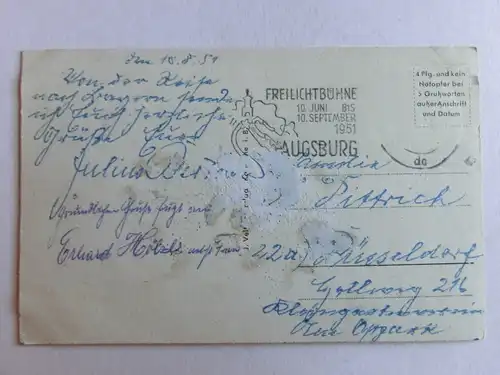 Am 10.8.51
Von der Reise
nach Bayern sende
ich Euch herzliche
Grüße Euer
Julius
Freundliche Grüße fügt an
Erhard
FREILICHTBÜHNE
10. JUNI BIS
10. SEPTEMBER
1951
AUGSBURG
4 Pfg. und kein
Notopfer bei
5 Grußworten
außer Anschrift
und Datum
Familie
Dittrich
22a) Düsseldorf
21b
Kleingartenverein